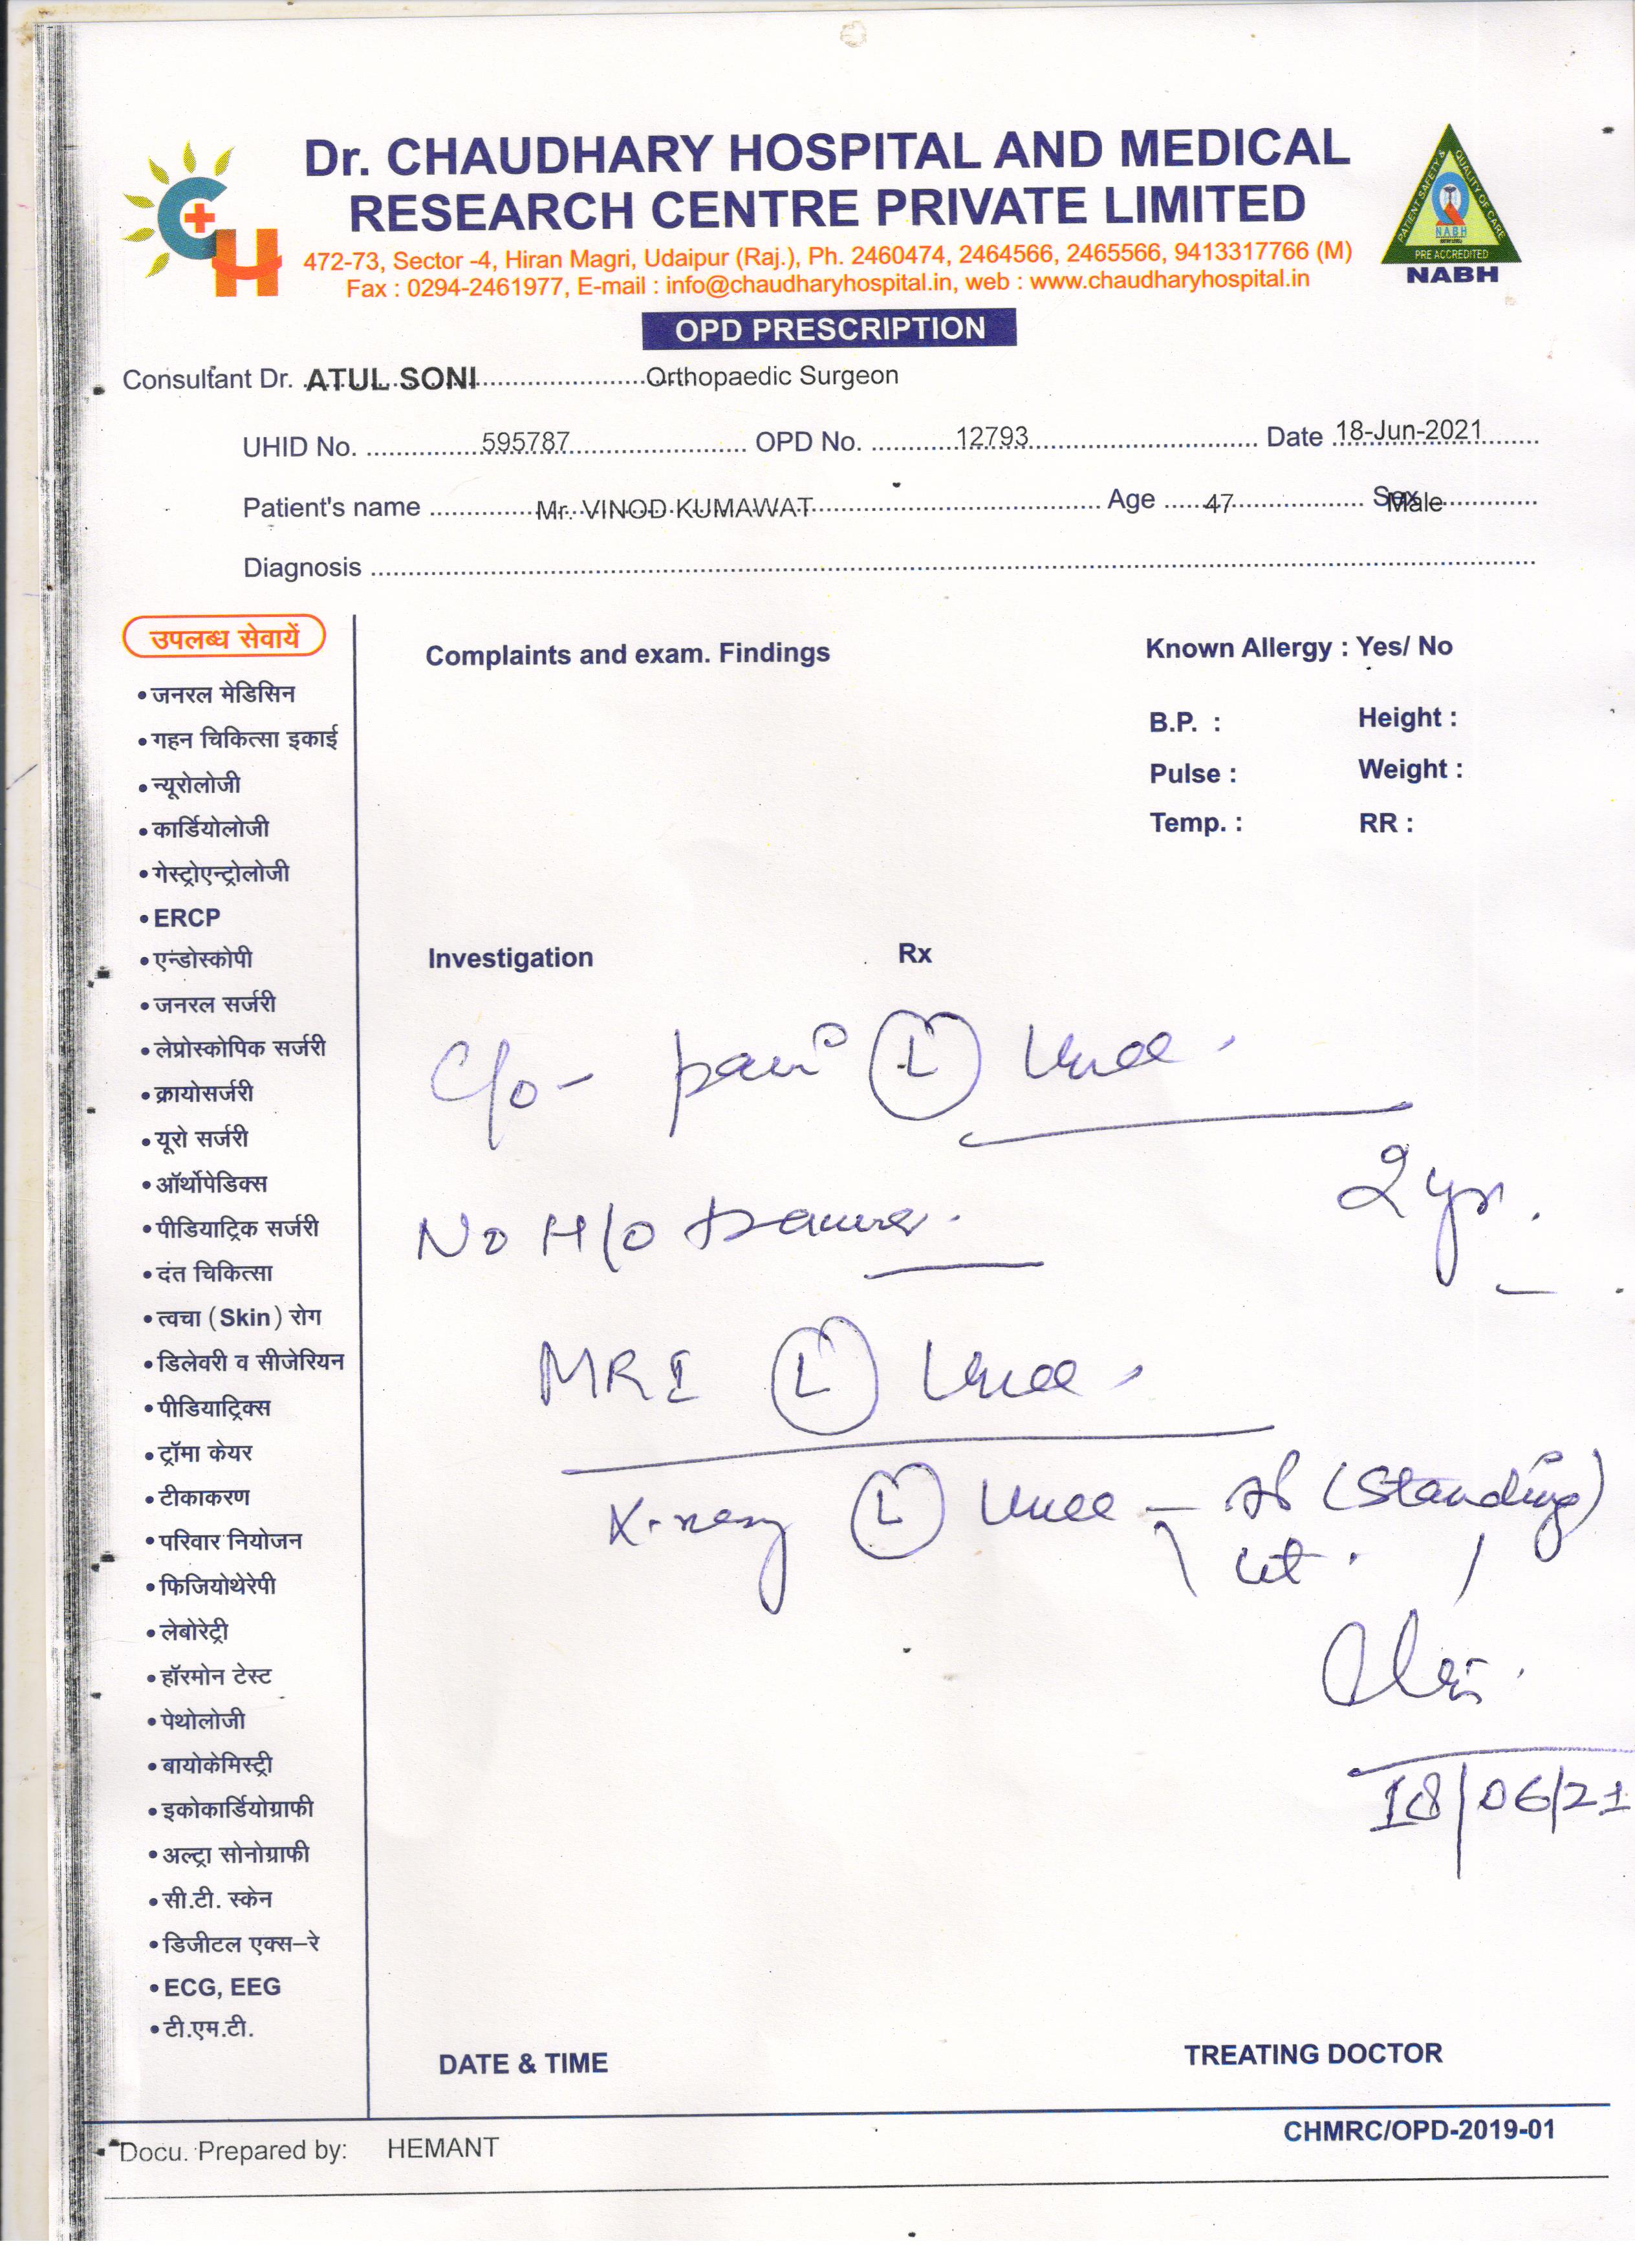 Dr. CHAUDHARY HOSPITAL AND MEDICAL
RESEARCH CENTRE PRIVATE LIMITED
472-73, Sector -4, Hiran Magri, Udaipur (Raj.), Ph. 2460474, 2464566, 2465566, 9413317766 (M)
Fax : 0294-2461977, E-mail : info@chaudharyhospital.in, web : www.chaudharyhospital.in
PATIENT SAFETY & QUALITY OF CARE
NABH
PRE ACCREDITED
NABH
OPD PRESCRIPTION
Consultant Dr. ATUL SONI Orthopaedic Surgeon
UHID No. 595787 OPD No. 12793 Date 18-Jun-2021
Patient's name Mr. VINOD KUMAWAT Age 47 Sex Male
Diagnosis
उपलब्ध सेवायें
• जनरल मेडिसिन
• गहन चिकित्सा इकाई
• न्यूरोलोजी
• कार्डियोलोजी
• गेस्ट्रोएन्ट्रोलोजी
• ERCP
• एन्डोस्कोपी
• जनरल सर्जरी
• लेप्रोस्कोपिक सर्जरी
• क्रायोसर्जरी
• यूरो सर्जरी
• ऑर्थोपेडिक्स
• पीडियाट्रिक सर्जरी
• दंत चिकित्सा
• त्वचा (Skin) रोग
• डिलेवरी व सीजेरियन
• पीडियाट्रिक्स
• ट्रॉमा केयर
• टीकाकरण
• परिवार नियोजन
• फिजियोथेरेपी
• लेबोरेट्री
• हॉरमोन टेस्ट
• पेथोलोजी
• बायोकेमिस्ट्री
• इकोकार्डियोग्राफी
• अल्ट्रा सोनोग्राफी
• सी.टी. स्केन
• डिजीटल एक्स-रे
• ECG, EEG
• टी.एम.टी.
Complaints and exam. Findings
Known Allergy : Yes/ No
B.P. : Height :
Pulse : Weight :
Temp. : RR :
Investigation Rx
C/o- pain (L) knee.
2 yr.
No H/o trauma.
MRI (L) knee.
X-ray (L) knee - (Standing)
lat.
18/06/21
DATE & TIME TREATING DOCTOR
CHMRC/OPD-2019-01
Docu. Prepared by: HEMANT